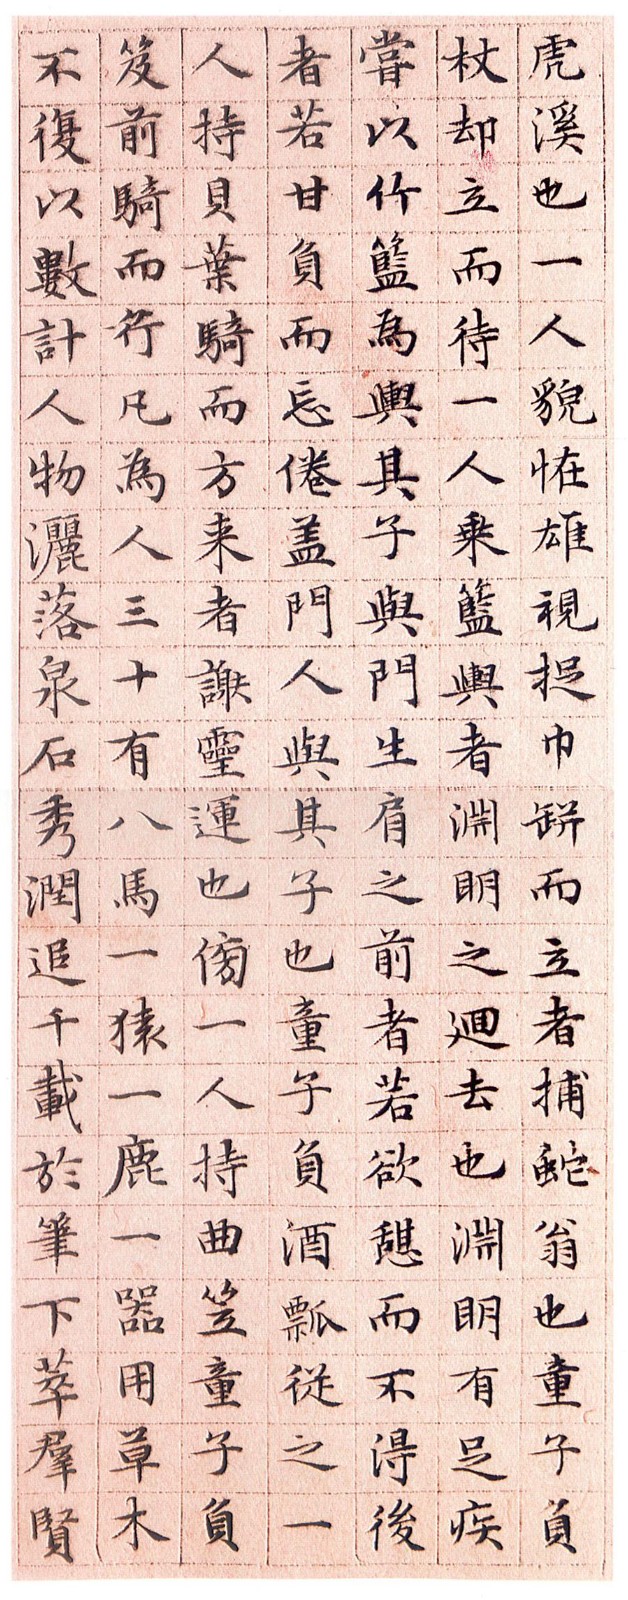 虎溪也一人貌恠雄視捉巾缾而立者捕蛇翁也童子負
杖却立而待一人乗籃輿者淵明之迴去也淵明有足疾
嘗以竹籃為輿其子與門生肩之前者若欲憇而不淂後
者若甘負而忘倦盖門人與其子也童子負酒瓢従之一
人持貝葉騎而方来者謝靈運也傍一人持曲笠童子負
笈前騎而行凡為人三十有八馬一猿一鹿一器用草木
不復以數計人物灑落泉石秀潤追千載於筆下萃羣賢